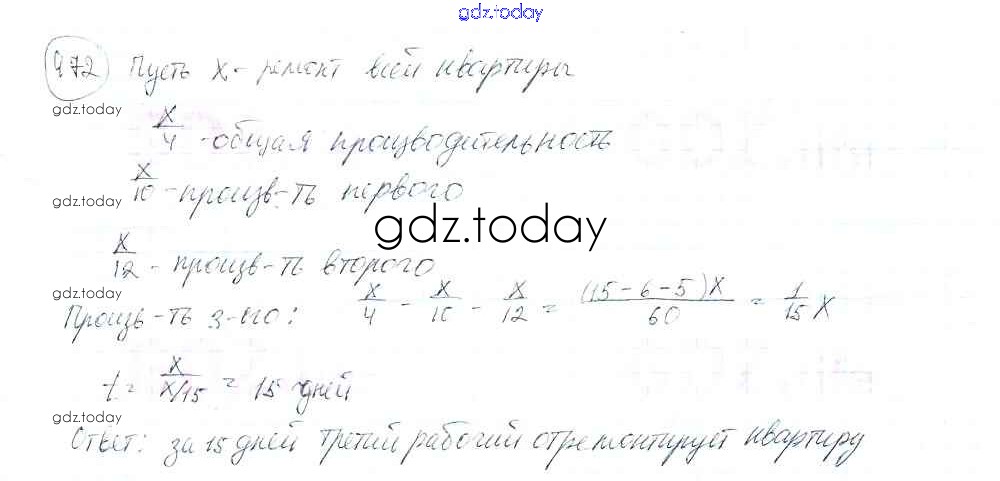 gdz.today
972 Пусть x - ремонт всей квартиры
gdz.today
x/4 - общая производительность
x/10 - произв-ть первого
gdz.today
gdz.today
x/12 - произв-ть второго
gdz.today
Произв-ть 3-его: x/4 - x/10 - x/12 = (15-6-5)x/60 = 1/15 x
t = x/x/15 = 15 дней
gdz.today
Ответ: за 15 дней третий рабочий отремонтирует квартиру